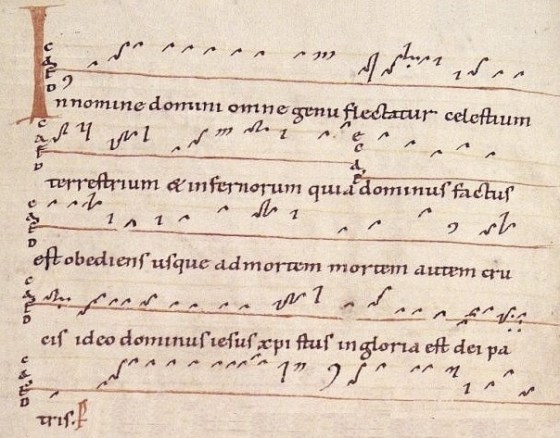 In nomine domini omne genu flectatur celestium
terrestrium & infernorum quia dominus factus
est obediens usque ad mortem mortem autem cru
cis ideo dominus iesus xpi stus in gloria est dei pa
tris.